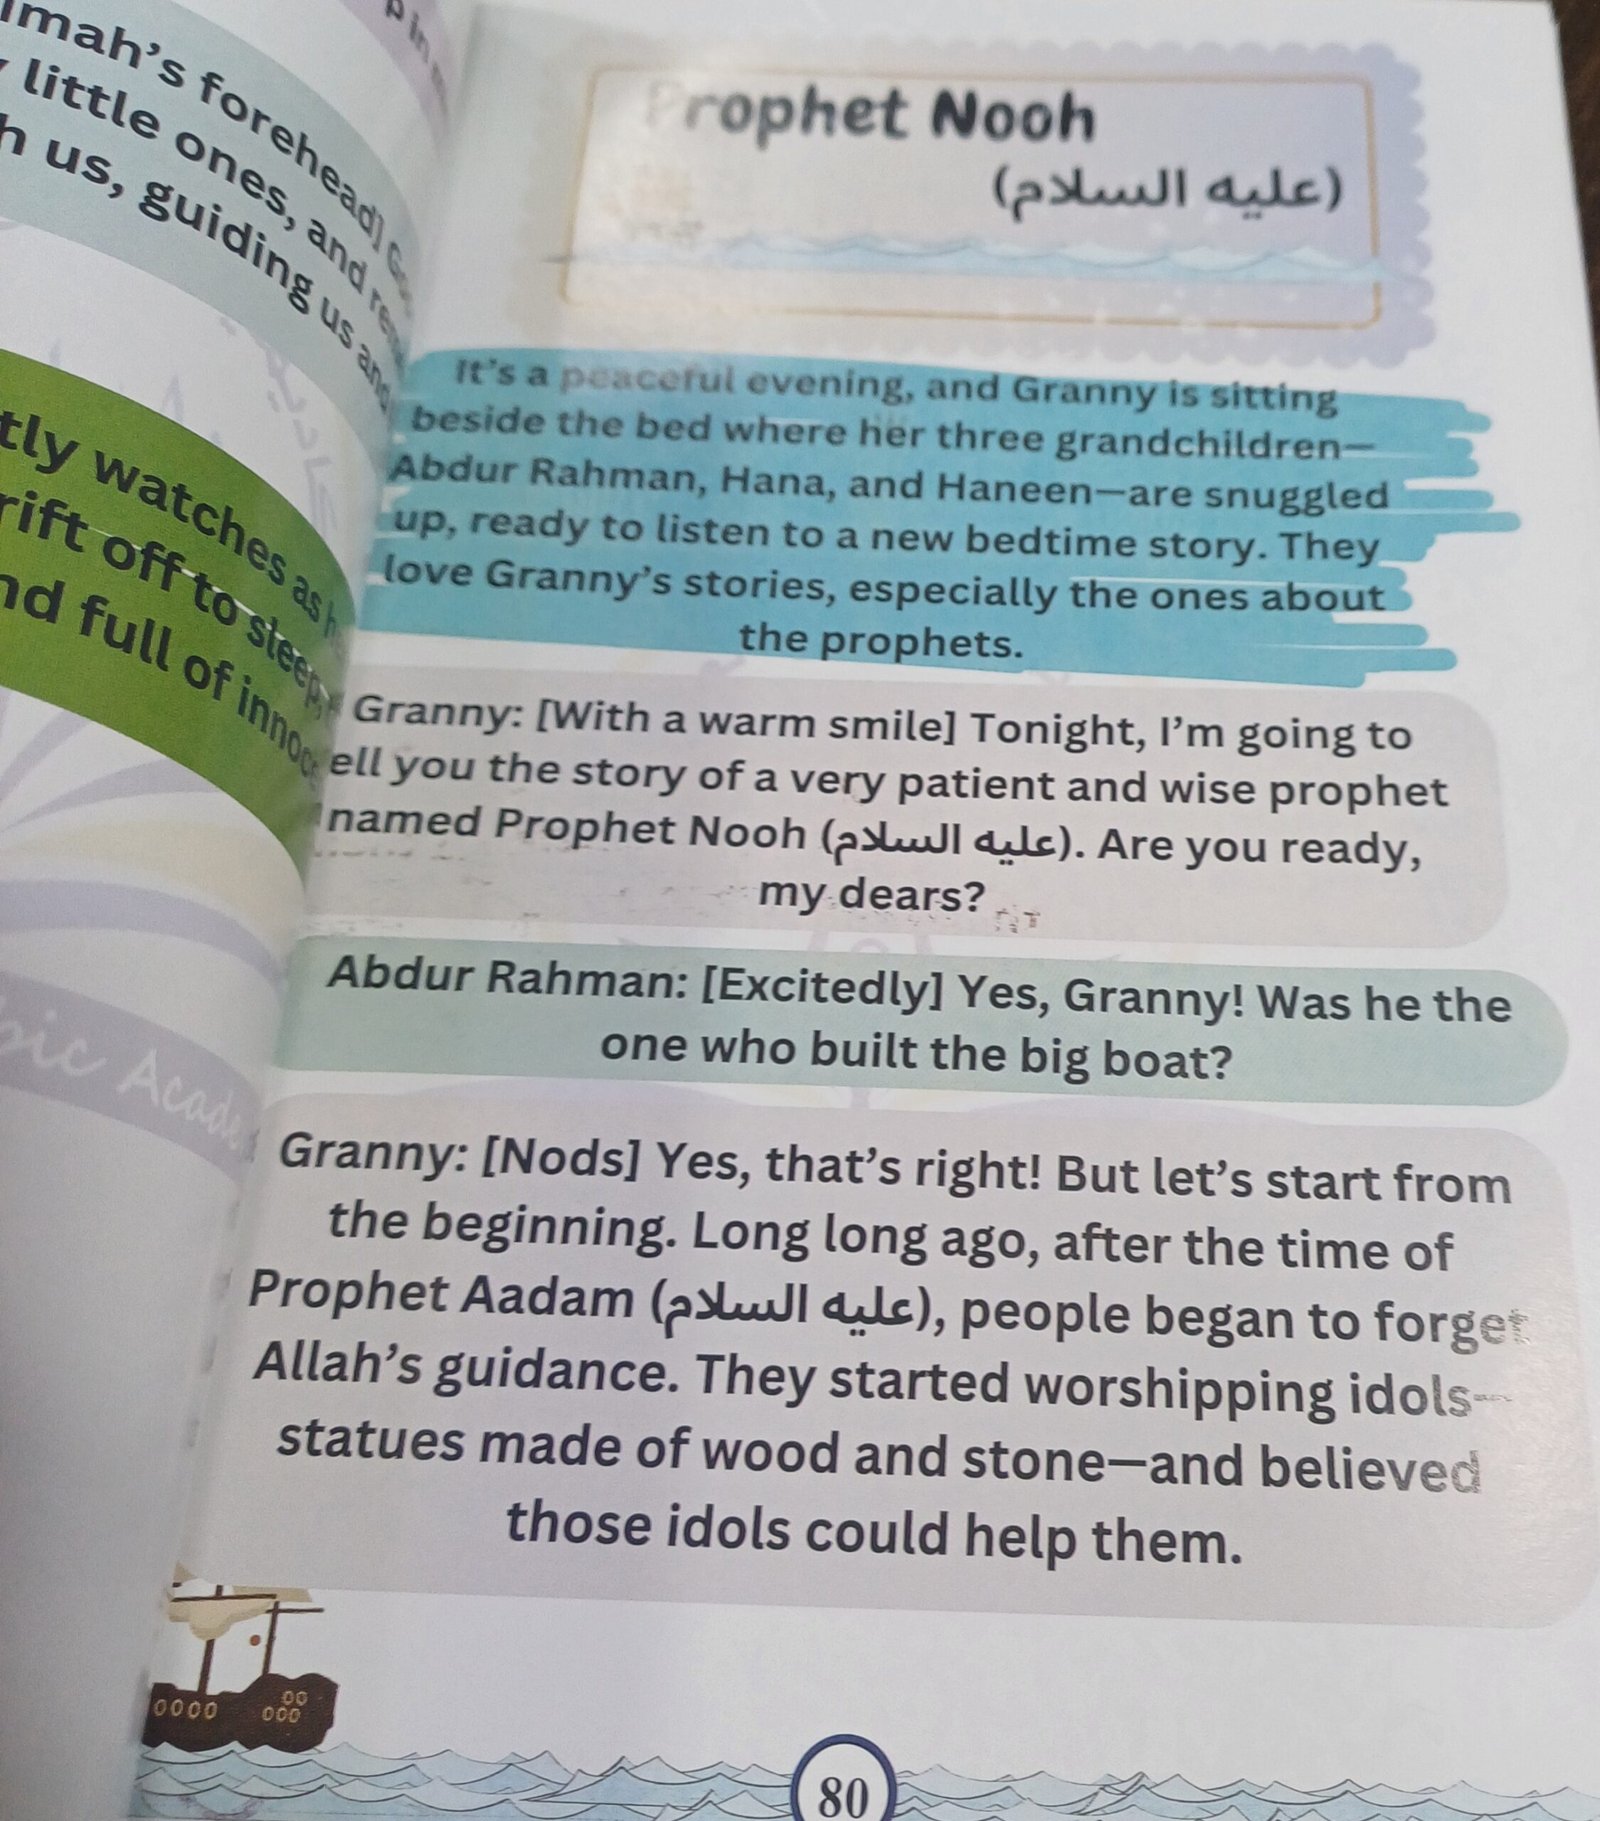 imah's forehead]
little ones, and
h us, guiding us and
tly watches as
rift off to sleep,
nd full of
Prophet Nooh
(عليه السلام)
It's a peaceful evening, and Granny is sitting
beside the bed where her three grandchildren—
Abdur Rahman, Hana, and Haneen—are snuggled
up, ready to listen to a new bedtime story. They
love Granny's stories, especially the ones about
the prophets.
Granny: [With a warm smile] Tonight, I'm going to
ell you the story of a very patient and wise prophet
named Prophet Nooh (عليه السلام). Are you ready,
my dears?
Abdur Rahman: [Excitedly] Yes, Granny! Was he the
one who built the big boat?
Granny: [Nods] Yes, that's right! But let's start from
the beginning. Long long ago, after the time of
Prophet Aadam (عليه السلام), people began to forget
Allah's guidance. They started worshipping idols—
statues made of wood and stone—and believed
those idols could help them.
80